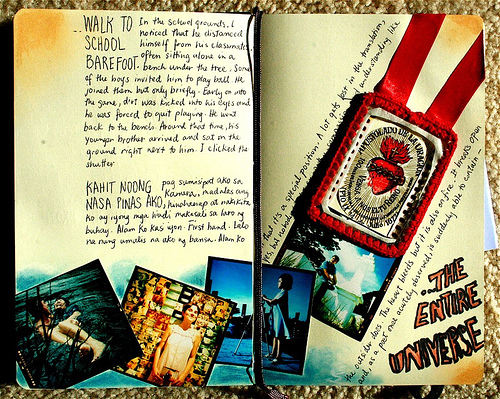 ..WALK TO
SCHOOL
BAREFOOT.
In the school grounds, I
noticed that he distanced
himself from his classmates,
often sitting alone in a
bench under the tree. Some
of the boys invited him to play ball. He
joined them but only briefly. Early on into
the game, dirt was kicked into his eyes and
he was forced to quit playing. He went
back to the bench. Around that time, his
younger brother arrived and sat on the
ground right next to him. I clicked the
shutter.
KAHIT NOONG
NASA PINAS AKO,
pag sumisipot ako sa
kamera, madalas ang
hinahanap at nakikita
ko ay iyong mga hindi makasali sa laro ng
buhay. Alam ko kas iyon. First hand. Lalo
na nung umalis na ako ng bansa. Alam ko
that it's a special position. A lot gets lost in the translation,
yes, but
understanding like
the outside does. The heart bleeds but it is also on fire. It breaks open
and, as a poet once acutely observed, is suddenly able to contain_
...THE
ENTIRE
UNIVERSE